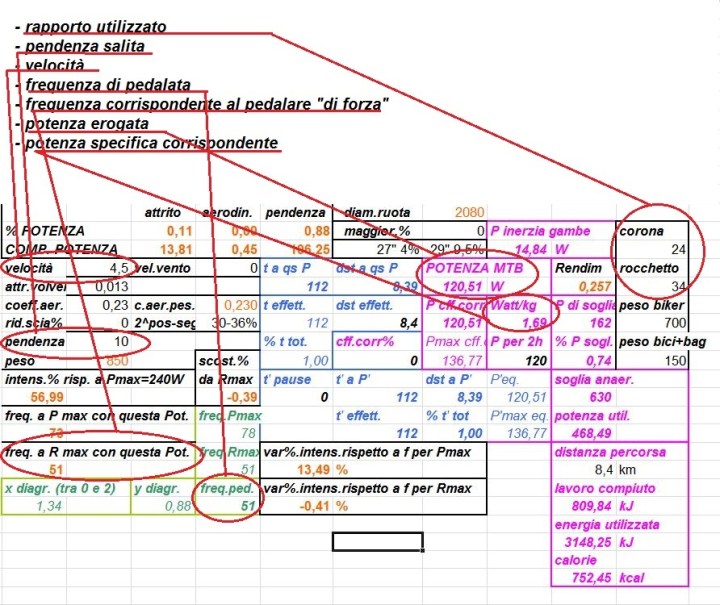 - rapporto utilizzato
- pendenza salita
- velocità
- frequenza di pedalata
- frequenza corrispondente al pedalare "di forza"
- potenza erogata
- potenza specifica corrispondente
attrito aerodin. pendenza diam.ruota 2080
% POTENZA 0,11 0,88 maggior.% 0 P inerzia gambe corona
COMP. POTENZA 13,81 0,45 106,25 27" 4% 29" 0,5% 14,84 W 24
velocità 4,5 vel.vento 0 t a qs P dst a qs P POTENZA MTB Rendim rocchetto
attr.volvei 0,013 112 8,39 120,51 W 0,257 34
coeff.aer. 0,23 c.aer.pes. 0,230 t effett. dst effett. P cff.corr Watt/kg P di soglia peso biker
rid.scia% 0 2^pos-seg 30-36% 112 8,4 120,51 1,69 162 700
pendenza 10 % t tot. cff.corr% Pmax cff. P per 2h % P sogl. peso bici+bag
peso 850 scost.% 1,00 0 136,77 120 0,74 150
intens.% risp. a Pmax=240W da Rmax t' pause t' a P' dst a P' P'eq. soglia anaer.
56,99 -0,39 0 112 8,39 120,51 630
freq. a P max con questa Pot. freq.Pmax t' effett. % t' tot P'max eq. potenza util.
73 78 112 1,00 136,77 468,49
freq. a R max con questa Pot. freq.Rmax var%.intens.rispetto a f per Pmax distanza percorsa
51 51 13,49 % 8,4 km
x diagr. (tra 0 e 2) y diagr. freq.ped. var%.intens.rispetto a f per Rmax lavoro compiuto
1,34 0,88 51 -0,41 % 809,84 kJ
energia utilizzata
3148,25 kJ
calorie
752,45 kcal